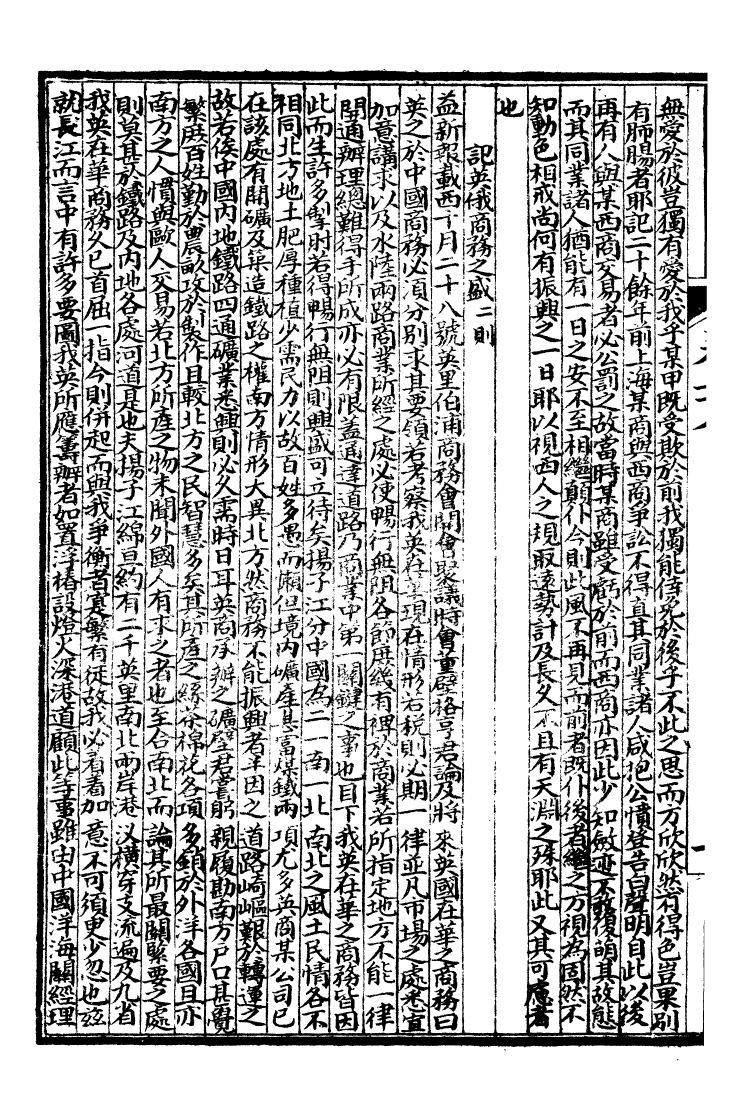 無愛於彼豈獨有愛於我乎某甲既受欺於前我獨能倖免於後乎不此之思而方欣欣然有得色豈果別
有肺腸者耶記二十餘年前上海某商與西商爭訟不得直其同業諸人咸抱公憤登告白聲明自此以後
再有人與某西商交易者必公罰之故當時某商雖受虧於前而西商亦因此少知斂迹不敢復萌其故態
而其同業諸人猶能有一日之安不至相繼顛仆今則此風不再見而前者既仆後者繼之方視為固然不
知動色相戒尚何有振興之一日耶以視西人之規取遠勢計及長久不且有天淵之殊耶此又其可慮者
也
記英俄商務之盛二則
益新報載西十月二十八號英里伯浦商務會開會聚議時會董壁格亨君論及將來英國在華之商務曰
英之於中國商務必須分別求其要領若考察我英在華現在情形若稅則必期一律並凡市場之處悉宜
加意講求以及水陸兩路商業所經之處必使暢行無阻各節庶幾有裨於商業若所指定地方不能一律
開通辦理總難得手所成亦必有限蓋通達道路乃商業中第一關鍵之事也目下我英在華之商務皆因
此而生許多掣肘若得暢行無阻則興盛可立待矣揚子江分中國為二一南一北南北之風土民情各不
相同北方地土肥厚種植少需民力以故百姓多愚而懶但境內礦產甚富煤鐵兩項尤多英商某公司已
在該處有開礦及築造鐵路之權南方情形大異北方然商務不能振興者半因之道路崎嶇艱於轉運之
故若俟中國內地鐵路四通礦業悉興則必久需時日耳英商承辦之礦壁君嘗躬親履勘南方戶口甚覺
繁庶百姓勤於農畝攻於製作且較北方之民智慧多矣其所產之絲茶棉花各項多銷於外洋各國且亦
南方之人慣與歐人交易若北方所產之物未聞外國人有求之者也至合南北而論其所最關緊要之處
則莫甚於鐵路及內地各處河道是也夫揚子江綿亘約有二千英里南北兩岸港汊橫穿支流遍及九省
我英在華商務久已首屈一指今則併起而與我爭衡者寔繁有徒故我必着着加意不可須更少忽也茲
就長江而言中有許多要圖我英所應籌辦者如置浮樁設燈火深港道顧此等事雖由中國洋海關經理